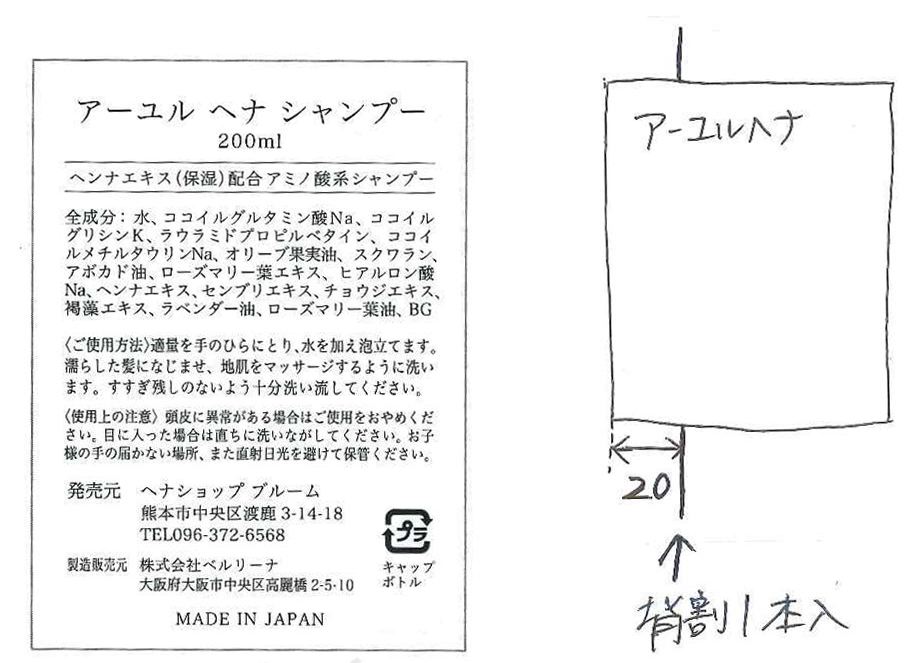 アーユル ヘナ シャンプー
200ml
ヘンナエキス(保湿)配合アミノ酸系シャンプー
全成分：水、ココイルグルタミン酸Na、ココイル
グリシンK、ラウラミドプロピルベタイン、ココイ
ルメチルタウリンNa、オリーブ果実油、スクワラン、
アボカド油、ローズマリー葉エキス、ヒアルロン酸
Na、ヘンナエキス、センブリエキス、チョウジエキス、
褐藻エキス、ラベンダー油、ローズマリー葉油、BG
〈ご使用方法〉適量を手のひらにとり、水を加え泡立てます。
濡らした髪になじませ、地肌をマッサージするように洗い
ます。すすぎ残しのないよう十分洗い流してください。
〈使用上の注意〉頭皮に異常がある場合はご使用をおやめくだ
さい。目に入った場合は直ちに洗いながしてください。お子
様の手の届かない場所、また直射日光を避けて保管ください。
発売元 ヘナショップ ブルーム
熊本市中央区渡鹿 3-14-18
TEL096-372-6568
プラ
キャップ
ボトル
製造販売元 株式会社ベルリーナ
大阪府大阪市中央区高麗橋 2-5-10
MADE IN JAPAN
アーユルヘナ
20
背割1本入